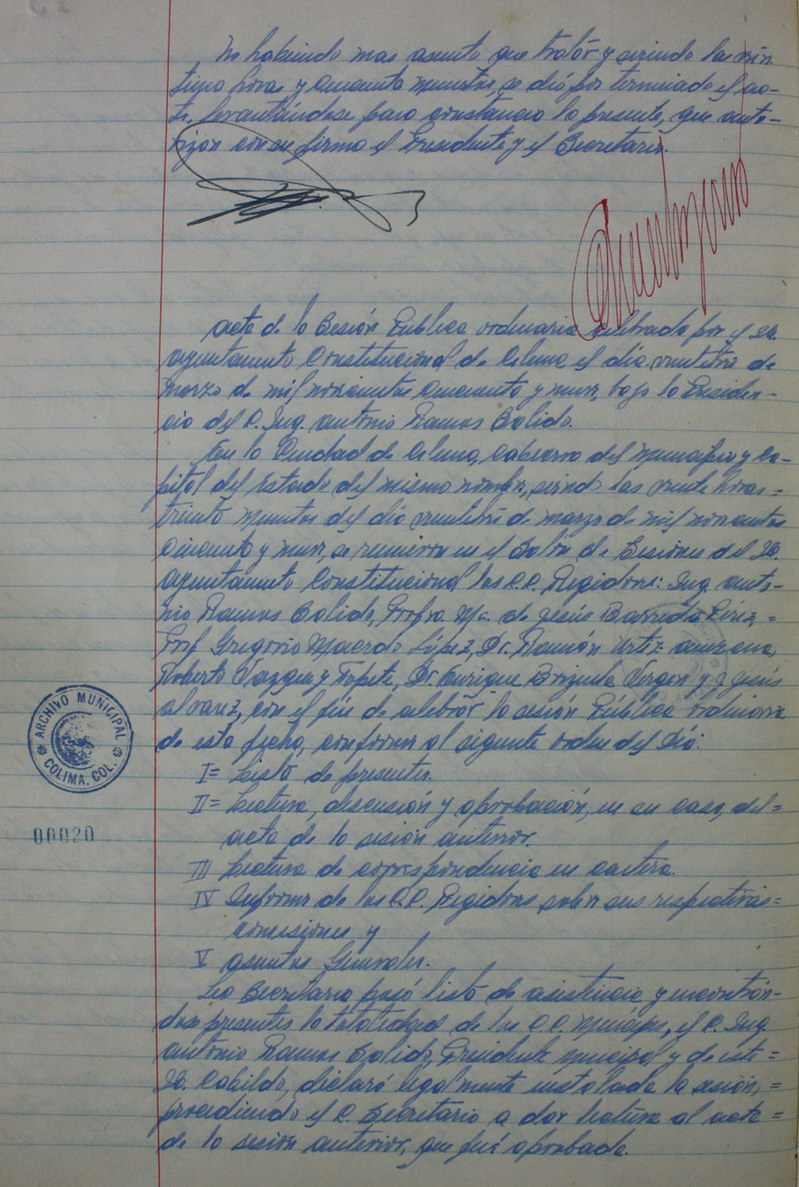 No habiendo mas asunto que tratar y siendo las vein
tiuna horas y cincuenta minutos, se dió por terminado el ac-
to, levantándose para constancia la presente, que auto-
rizan con su firma el Presidente y el Secretario.
acta de la Sesión Pública ordinaria celebrada por el H.
ayuntamiento Constitucional de Colima el día veintitrés de
marzo de mil novecientos cincuenta y nueve, bajo la Presiden-
cia del C. Ing. antonio Ramos Salido.
En la Ciudad de Colima, Cabecera del Municipio y Ca-
pital del Estado del mismo nombre, siendo las veinte horas=
treinta minutos del día veintitrés de marzo de mil novecientos
cincuenta y nueve, se reunieron en el Salón de Sesiones del H.
ayuntamiento Constitucional los C.C. Regidores: Ing. anto-
nio Ramos Salido, Profra. Ma. de Jesús Barreda Pérez,=
Prof. Gregorio Macedo López, Dr. Ramón
Roberto Vazquez y Tapete, Dr. Enrique Brizuela Virgen y J. Jesús
alvarez, con el fin de celebrar la sesión Pública ordinaria
de esta fecha, conforme al siguiente orden del Día:
ARCHIVO MUNICIPAL
COLIMA, COL.
I= Lista de presentes.
II= Lectura, discusión y aprobación, en su caso, del=
acta de la sesión anterior.
00020
III Lectura de correspondencia en cartera.
IV Informe de los C.C. Regidores sobre sus respectivas=
comisiones y
V asuntos Generales.
La Secretaria pasó lista de asistencia y encontrán-
dose presentes la totalidad de los C.C. Munícipes, el C. Ing.
antonio Ramos Salido, Presidente Municipal y de este=
H. Cabildo, declaró legalmente instalada la sesión,=
procediendo el C. Secretario a dar lectura al acta=
de la sesión anterior, que fué aprobada.